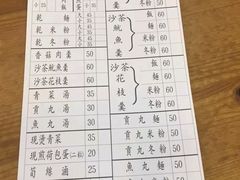 乾麵 35
乾米粉 35
乾冬粉 35
香菇肉羹 50
沙茶魷魚羹 60
沙茶花枝羹 60
青菜湯 35
貢丸湯 35
魚丸湯 35
現燙青菜 35
現煎荷包蛋(二粒) 30
筍絲滷 50
沙茶魷魚羹
飯 60
麵 60
米粉 60
冬粉 60
沙茶花枝羹
飯 60
麵 60
米粉 60
冬粉 60
貢丸麵 50
貢丸米粉 50
貢丸冬粉 50
魚丸麵 50
魚丸米粉 50
魚丸冬粉 50